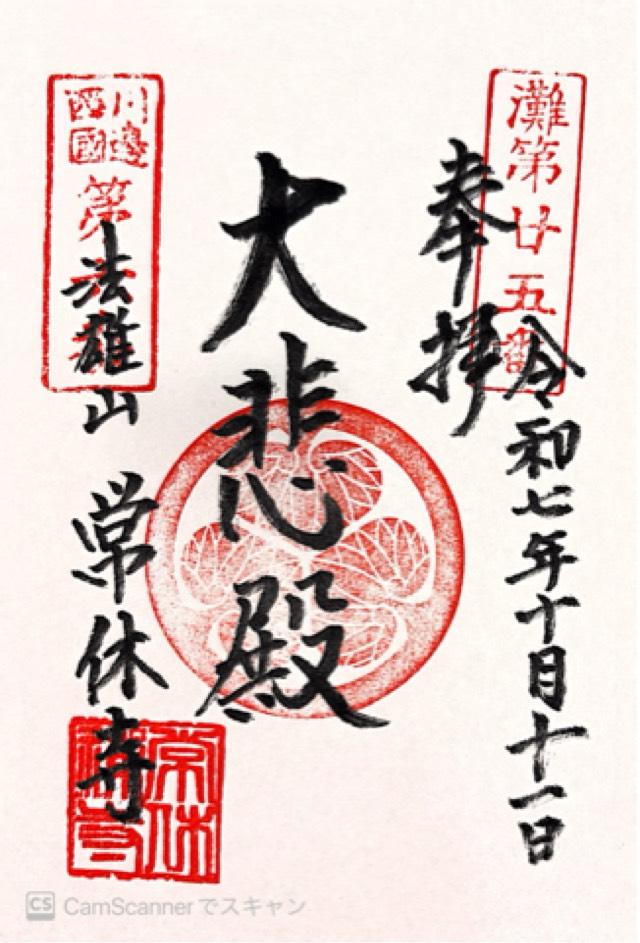 灘第廿五番
奉拝
令和七年十月十一日
大悲殿
川邊
西國
第
法雄山
常休寺
常休
CS CamScannerでスキャン